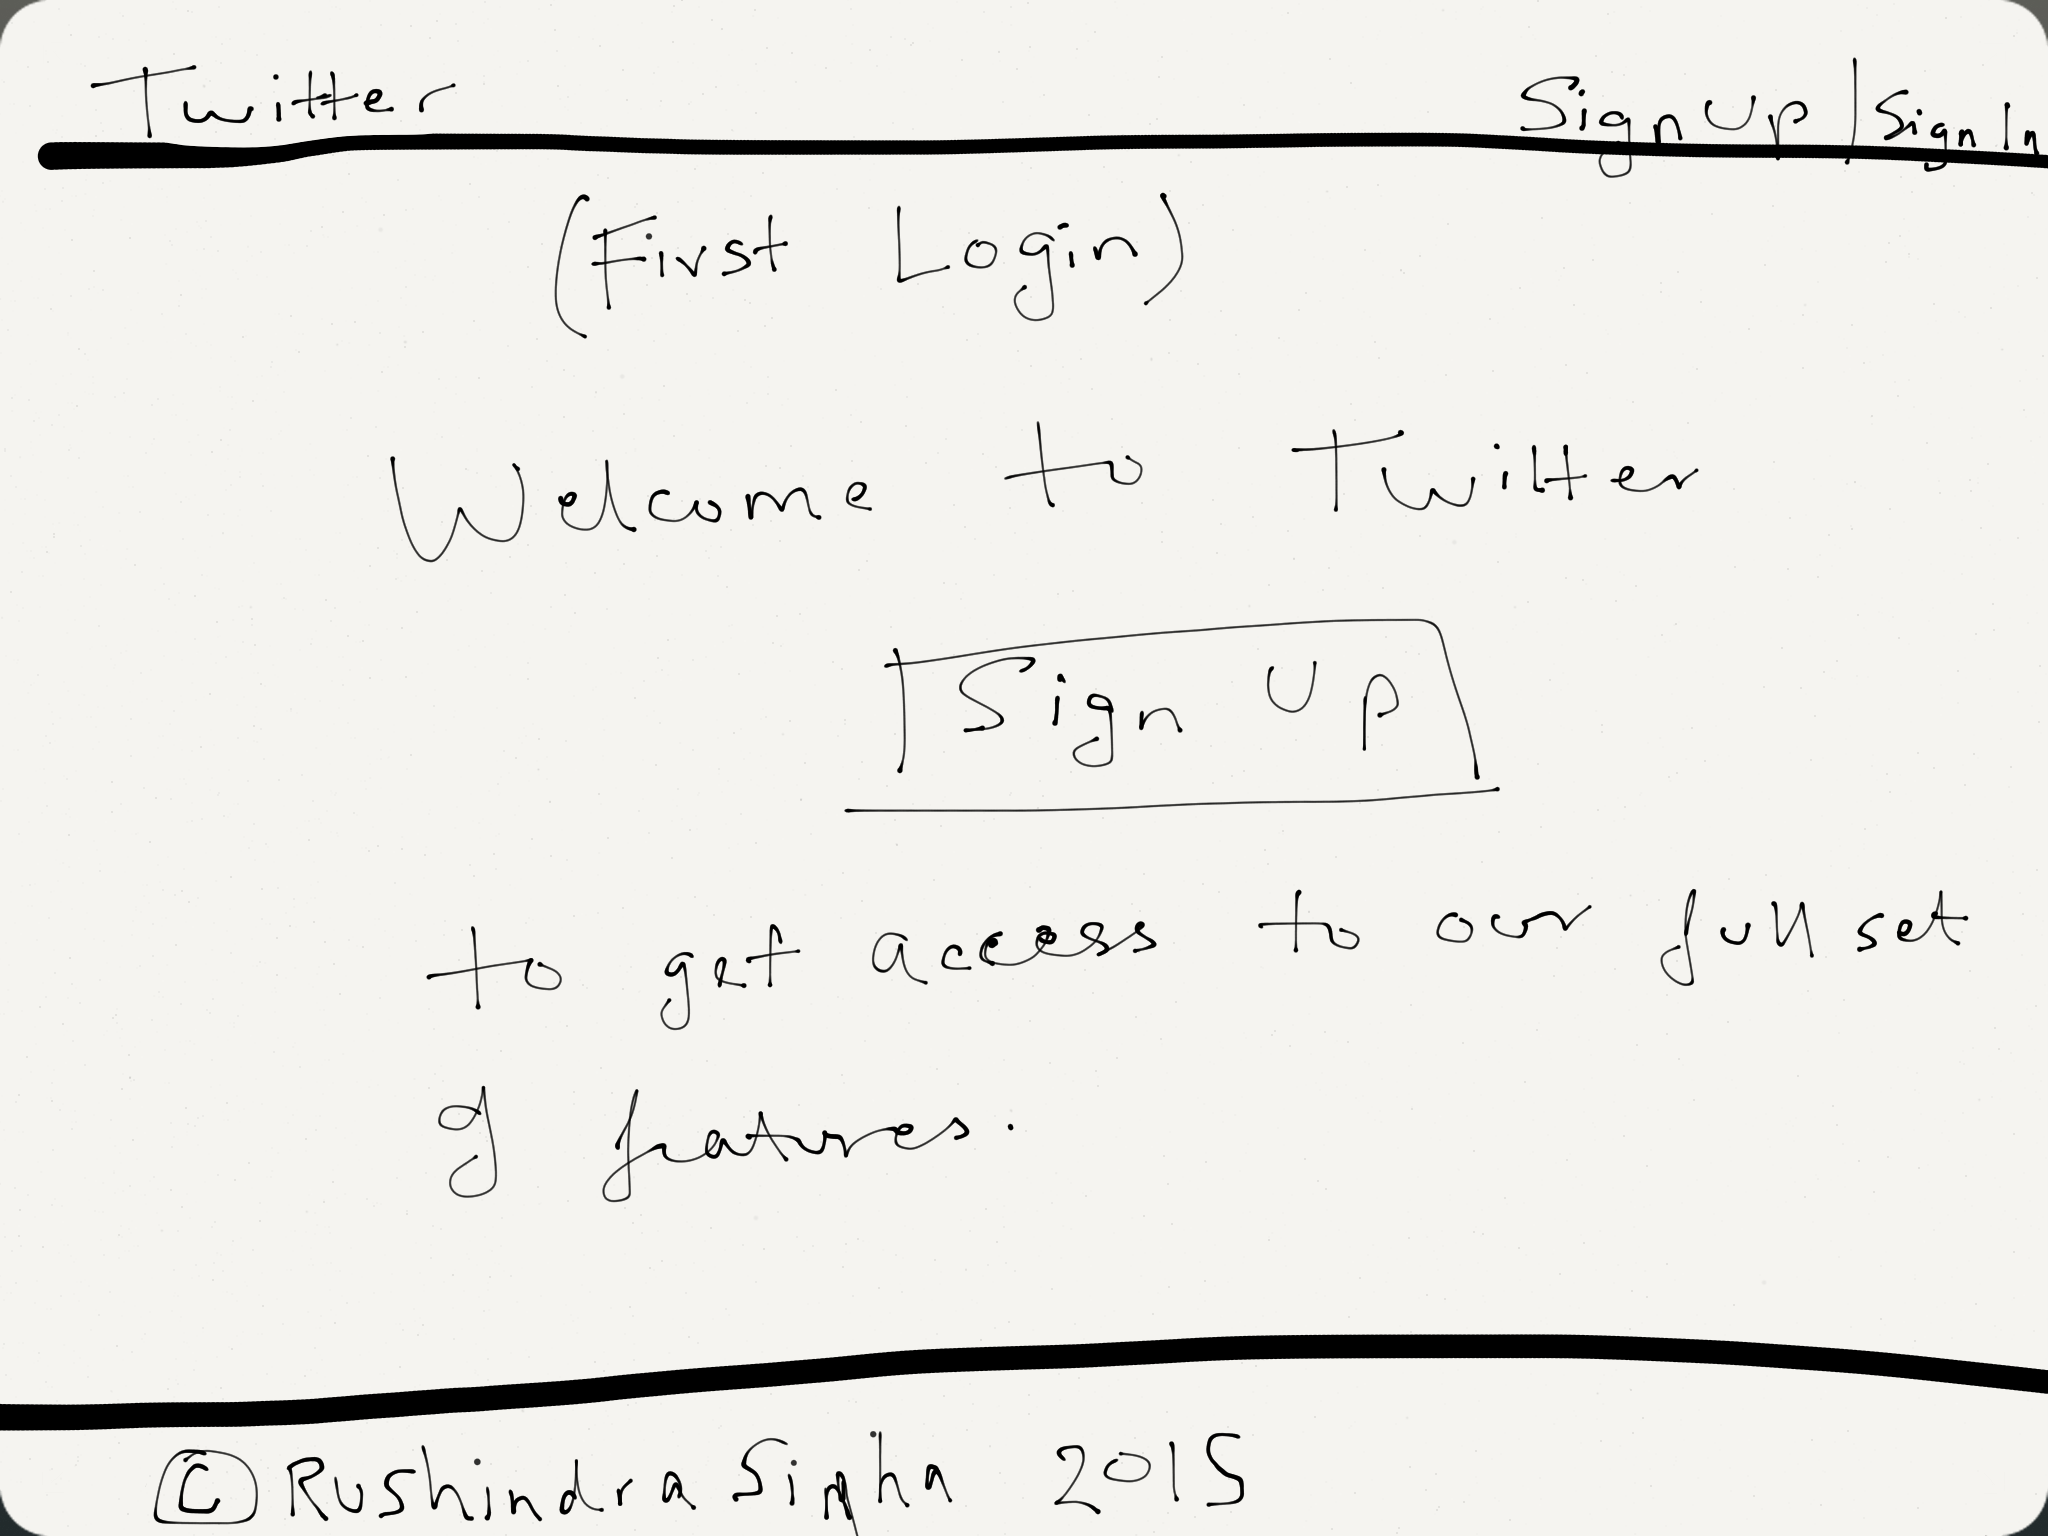 Twitter SignUp | Sign In
(First Login)
Welcome to Twitter
Sign Up
to get access to our full set
of features.
© Rushindra Sinha 2015